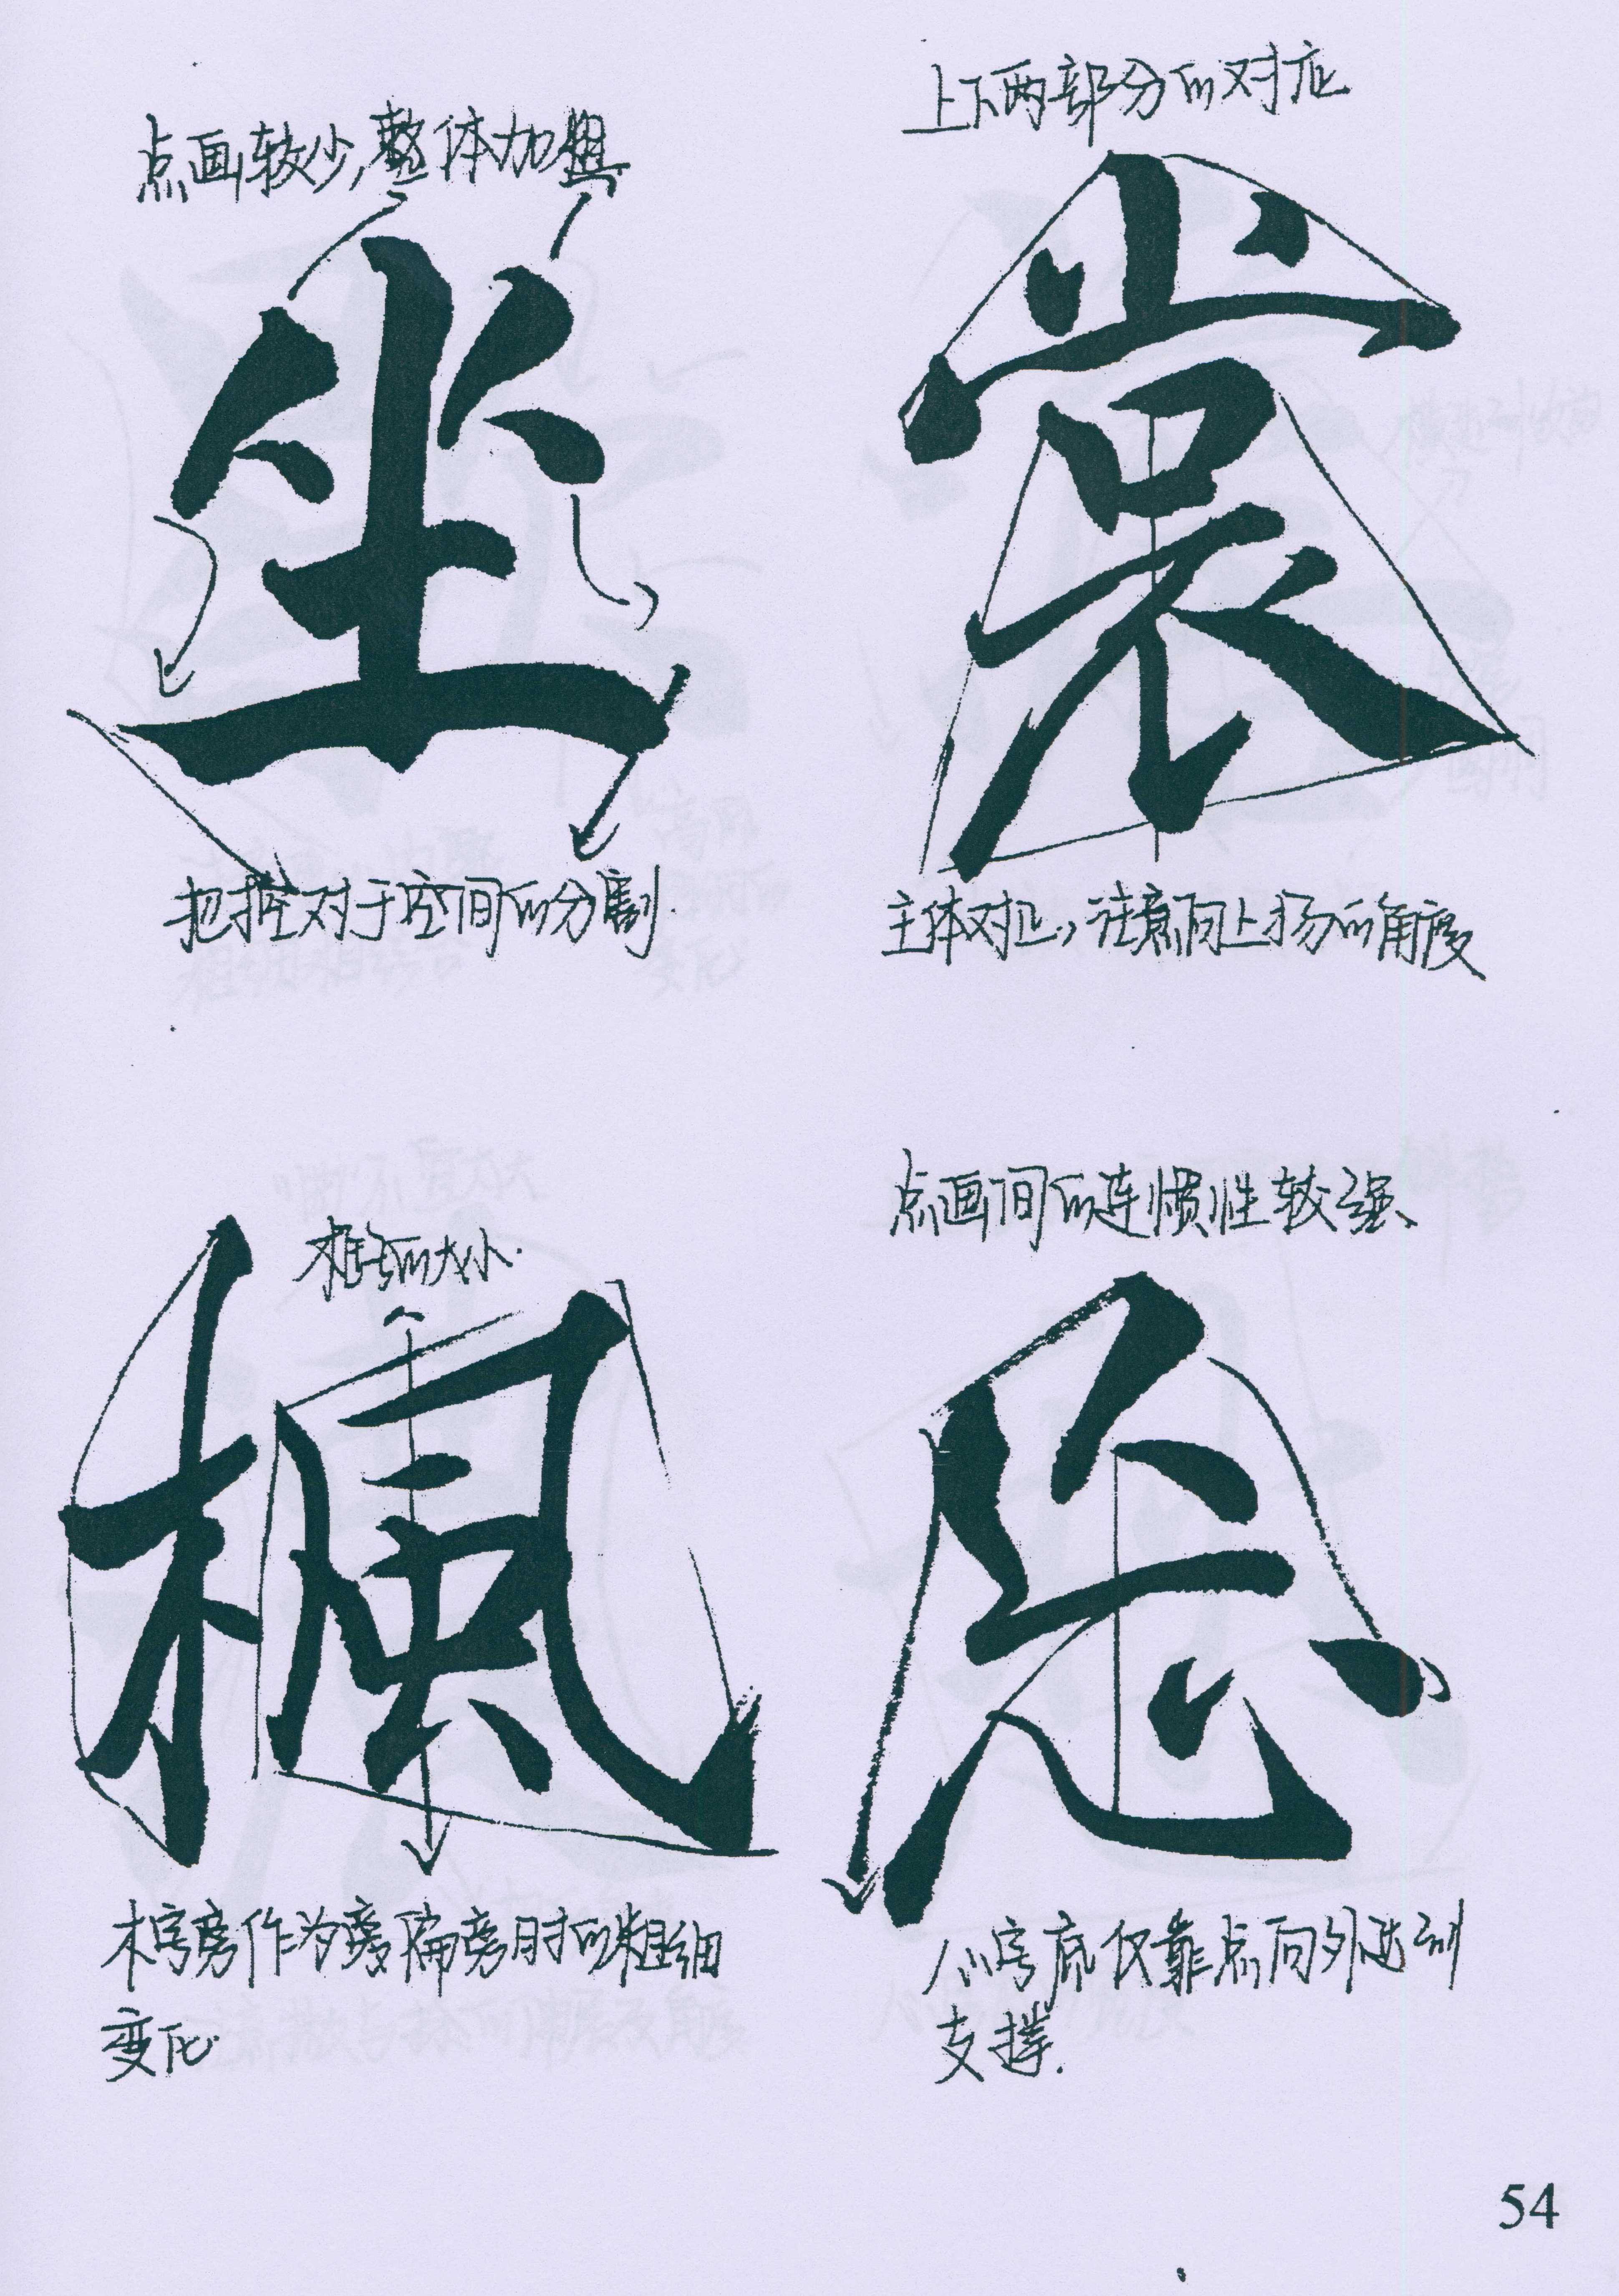 点画较少,整体加粗
坐
把控对于空间的分割.
上下两部分的对应
裳
主体对正,注意向上扬的角度
框的大小.
楓
木字旁作为偏旁时的粗细
变化.
点画间的连惯性较强、
心字底仅靠点向外达到
支撑.
54